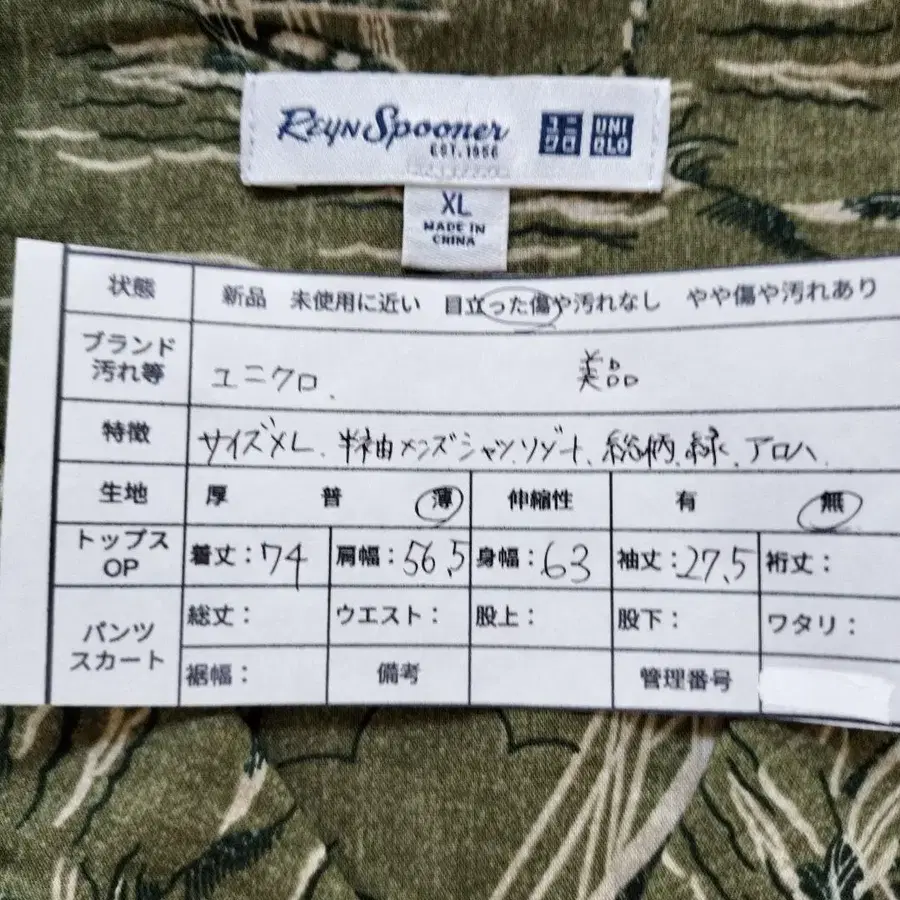 REYN SPOONER
EST.1956
ユニクロ
UNI
QLO
XL
MADE IN
CHINA
状態 新品 未使用に近い 目立った傷や汚れなし やや傷や汚れあり
ブランド
汚れ等 ユニクロ、 美品
特徴 サイズXL、半袖メンズシャツ、リゾート、総柄、緑、アロハ、
生地 厚 普 薄 伸縮性 有 無
トップス
OP 着丈:74 肩幅:56,5 身幅:63 袖丈:27,5 裄丈:
パンツ
スカート 総丈: ウエスト: 股上: 股下: ワタリ:
裾幅: 備考 管理番号